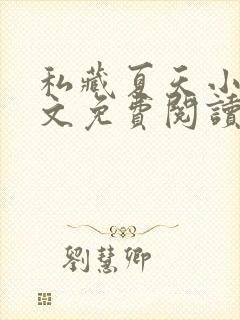 私藏夏天小
文免費閱讀
劉慧卿